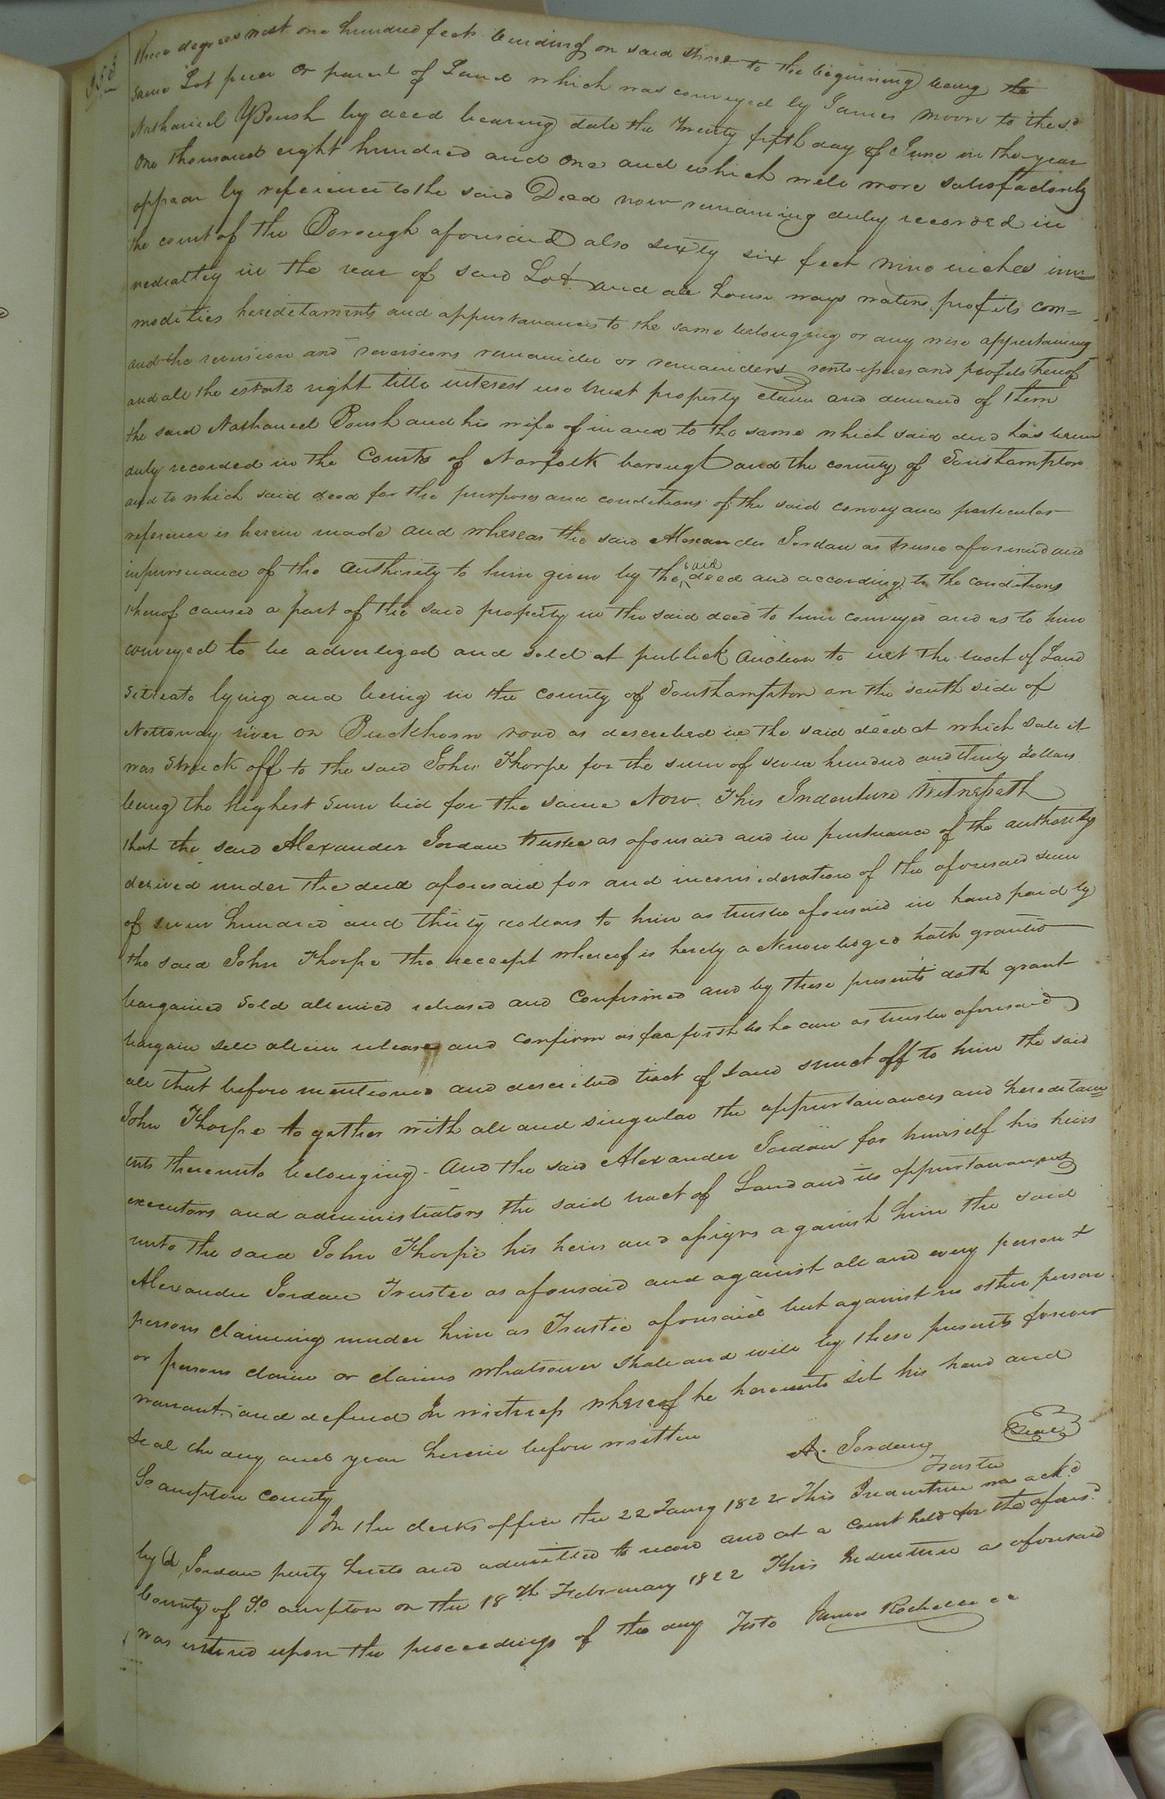 three degrees west one hundred feet binding on said street to the beginning being the
same Lot piece or parcel of Land which was conveyed by James Moore to the sd
Nathaniel Boush by deed bearing date the twenty fifth day of June in the year
One thousand eight hundred and one and which will more satisfactorily
appear by reference to the said Deed now remaining duly recorded in
the court of the Borough aforesaid also sixty six feet nine inches imm=
mediately in the rear of said Lot and all house ways waters profits com=
modities hereditaments and appurtanances to the same belonging or any wise appertaining
and the reversion and reversions remainder or remainders rents issues and profits thereof
and all the estate right title interest use trust property claim and demand of them
the said Nathaniel Boush and his wife of in and to the same which said deed has been
duly recorded in the Courts of Norfolk borough and the county of Southampton
and to which said deed for the purposes and conditions of the said conveyance particular
reference is herein made and whereas the said Alexander Jordan as trusee aforesaid and
inpursuance of the authority to him given by the said deed and according to the conditions
thereof caused a part of the said property in the said deed to him conveyed and as to him
conveyed to be advertized and sold at publick Auction to wit the tract of Land
situate lying and being in the county of Southampton on the south side of
Nottoway river on Buckhorn road as described in the said deed at which sale it
was struck off to the said John Thorpe for the sum of seven hundred and thirty dollars
being the highest sum bid for the same Now This Indenture Witnesseth
that the said Alexander Jordan trustee as aforesaid and in pursuance of the authority
derived under the deed aforesaid for and inconsideration of the aforesaid sum
of seven hundred and thirty dollars to him as trustee aforesaid in hand paid by
the said John Thorpe the receept whereof is hereby acknowledged hath granted
bargained sold aliened released and confirmed and by these presents doth grant
bargain sell alien release and confirm as far forth as he can as trustee aforesaid
all that before mentioned and described tract of Land struct off to him the said
John Thorpe together with all and singular the appurtanances and hereditam=
ents thereunto belonging. And the said Alexander Jordan for himself his heirs
executors and administrators the said tract of Land and its appurtanances
unto the said John Thorpe his heirs and assigns against him the said
Alexander Jordan Trustee as aforesaid and against all and every person &
persons claiming under him as Trustee aforesaid but against no other person
or persons claim or claims whatsoever shall and will by these presents forever
warrant and defend In witness whereof he hereunto set his hand and
seal the day and year herein before written
A. Jordan Seal
Trustee
So ampton County
In the clerks office the 22 Jany 1822 This Indenture was ackd
by A. Jordan party hereto and admitted to record and at a court held for the aforesd
County of So ampton on the 18th February 1822 This Indenture as aforesaid
was entered upon the proceedings of the day Teste James Rochelle cc